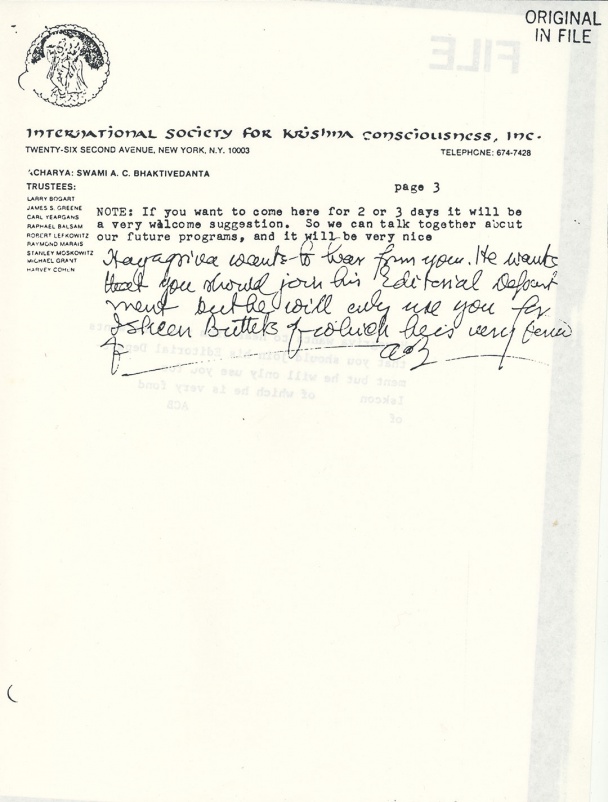 ORIGINAL
IN FILE
FILE
INTERNATIONAL SOCIETY FOR KRISHNA CONSCIOUSNESS, INC.
TWENTY-SIX SECOND AVENUE, NEW YORK, N.Y. 10003 TELEPHONE: 674-7428
ACHARYA: SWAMI A. C. BHAKTIVEDANTA
TRUSTEES: page 3
LARRY BOGART
JAMES S. GREENE
CARL YEARGANS
RAPHAEL BALSAM
ROBERT LEFKOWITZ
RAYMOND MARAIS
STANLEY MOSKOWITZ
MICHAEL GRANT
HARVEY COHEN
NOTE: If you want to come here for 2 or 3 days it will be
a very welcome suggestion. So we can talk together about
our future programs, and it will be very nice
Hayagriva wants to hear from you. He wants
that you should join his Editorial Depart
ment but he will only use you for
of which he is very
of
ACB
that you should join his Editorial Dep
ment but he will only use you
Iskcon of which he is very fond
of ACB